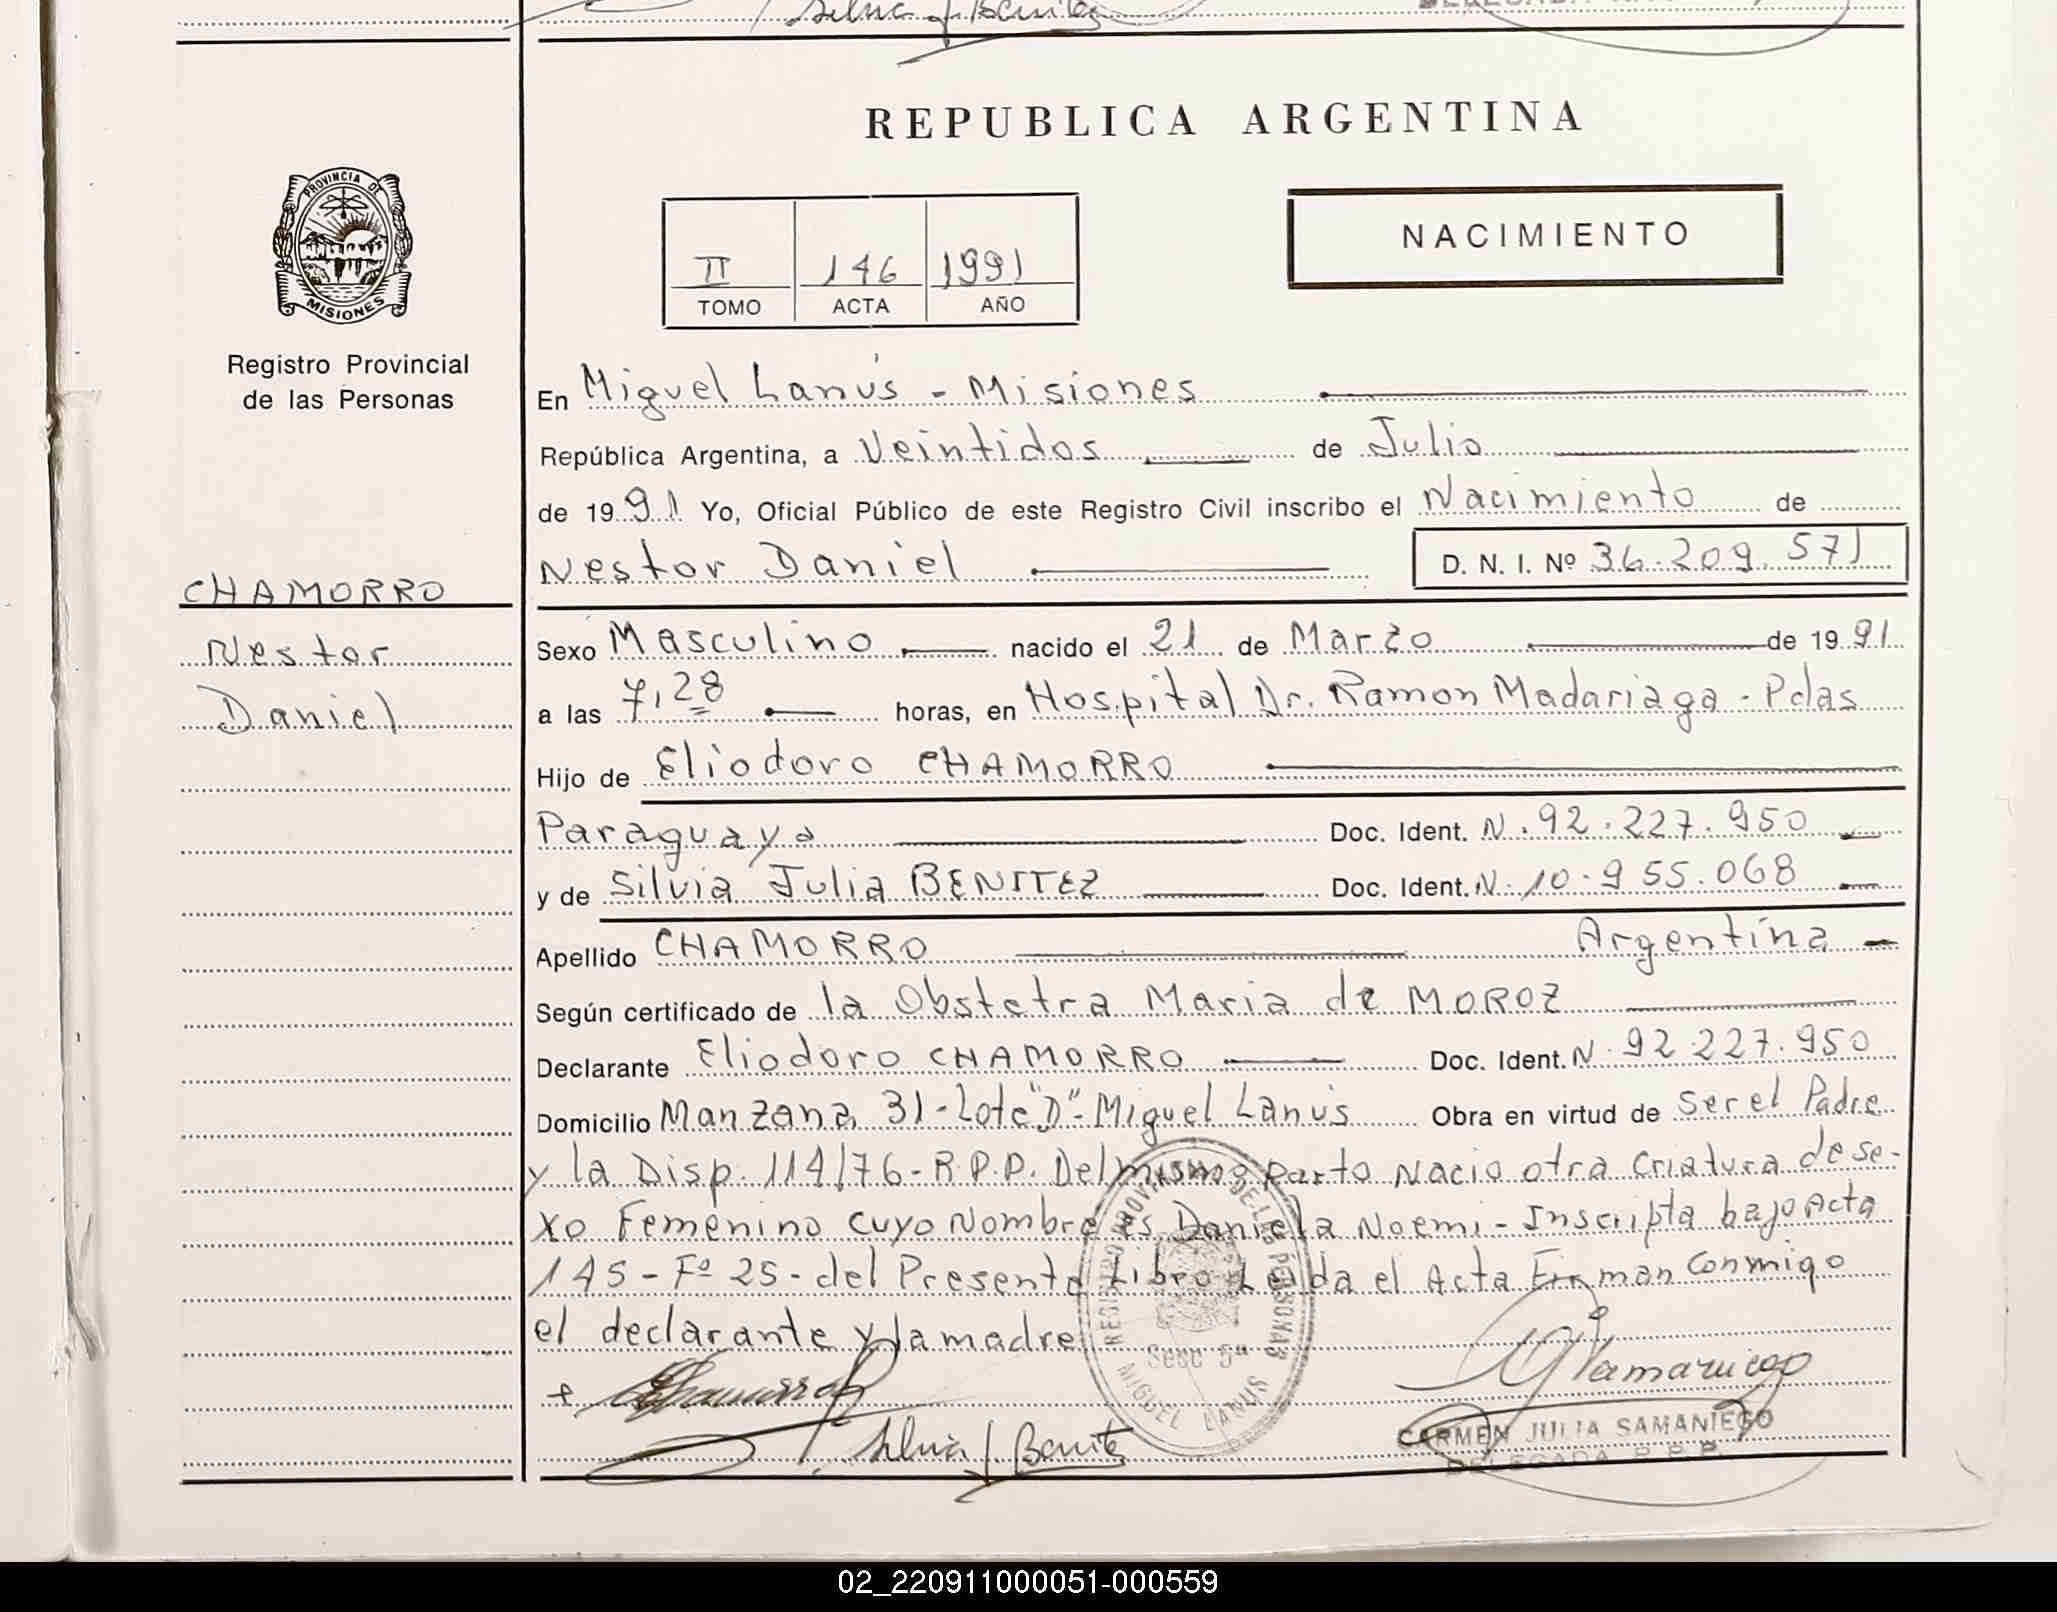 Silvia J. Benitez
REPUBLICA ARGENTINA
PROVINCIA DE
MISIONES
Registro Provincial
de las Personas
NACIMIENTO
II 146 1991
TOMO ACTA AÑO
En Miguel Lanús - Misiones
República Argentina, a Veintidos de Julio
de 1991 Yo, Oficial Público de este Registro Civil inscribo el Nacimiento de
Nestor Daniel D. N. I. Nº 36.209.571
CHAMORRO
Nestor
Daniel
Sexo Masculino nacido el 21 de Marzo de 1991
a las 7,28 horas, en Hospital Dr. Ramon Madariaga - Pdas
Hijo de Eliodoro CHAMORRO
Paraguayo Doc. Ident. N. 92.227.950
y de Silvia Julia BENITEZ Doc. Ident. N. 10.955.068
Apellido CHAMORRO Argentina
Según certificado de la Obstetra Maria de MOROZ
Declarante Eliodoro CHAMORRO Doc. Ident. N. 92.227.950
Domicilio Manzana 31 - Lote "D" - Miguel Lanús Obra en virtud de Ser el Padre
y la Disp. 114/76 - R.P.P. Del mismo parto Nacio otra Criatura de se-
xo Femenino cuyo Nombre es Daniela Noemi - Inscripta bajo Acta
145 - Fº 25 - del Presente Libro Leida el Acta Firman Conmigo
el declarante y la madre
REGISTRO PROVINCIAL DE LAS PERSONAS
Secc 5ª
MIGUEL LANUS
Silvia J. Benitez
CARMEN JULIA SAMANIEGO
DELEGADA R.P.P.
02_220911000051-000559